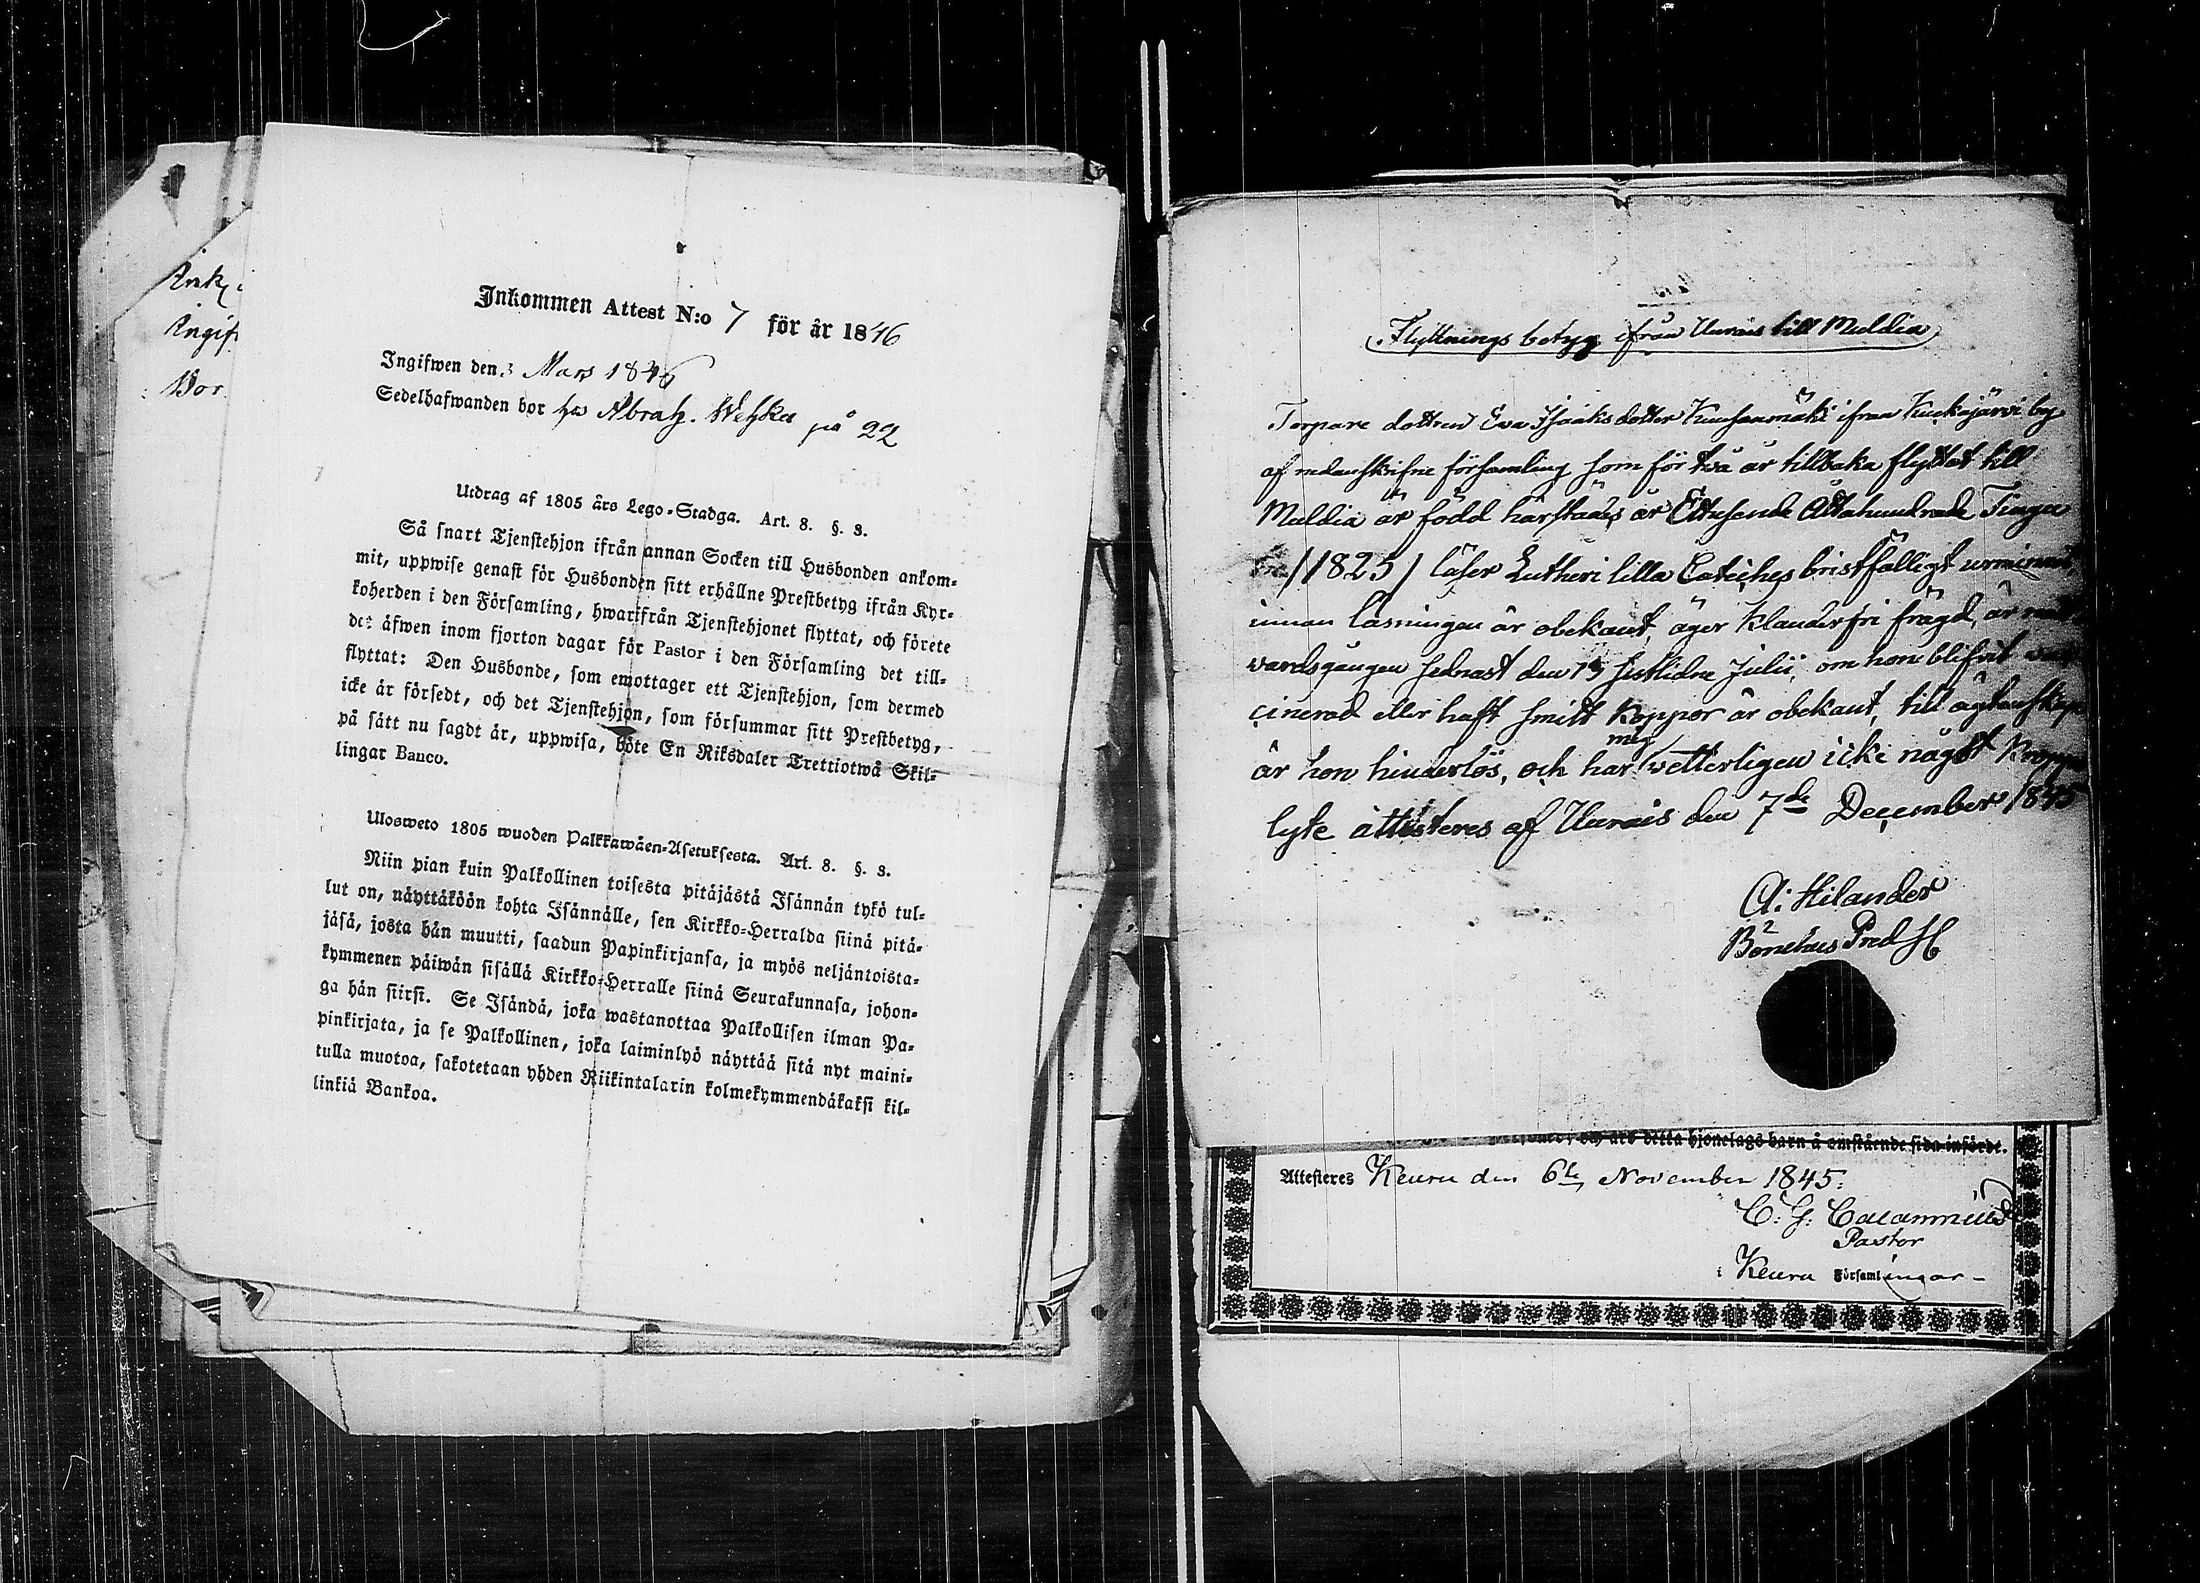 Ank
Ingif
Bor
Inkommen Attest N:o 7 för år 1846
Ingifwen den 3 Mars 1846
Sedelhafwanden bor hos Abrah. Wehka på 22
Utdrag af 1805 års Lego-Stadga. Art. 8. §. 3.
Så snart Tjenstehjon ifrån annan Socken till Husbonden ankom-
mit, uppwise genast för Husbonden sitt erhållne Prestbetyg ifrån Kyr-
koherden i den Församling, hwarifrån Tjenstehjonet flyttat, och förete
det äfwen inom fjorton dagar för Pastor i den Församling det till-
flyttat: Den Husbonde, som emottager ett Tjenstehjon, som dermed
icke är försedt, och det Tjenstehjon, som försummar sitt Prestbetyg,
på sätt nu sagdt är, uppwisa, böte En Riksdaler Trettiotwå Skil-
lingar Banco.
Ulosweto 1805 wuoden Palkkawäen-Asetuksesta. Art. 8. §. 3.
Niin pian kuin Palkollinen toisesta pitäjästä Isännän tykö tul-
lut on, näyttäköön kohta Isännälle, sen Kirkko-Herralda siinä pitä-
jäsä, josta hän muutti, saadun Papinkirjansa, ja myös neljäntoista-
kymmenen päiwän sisällä Kirkko-Herralle siinä Seurakunnasa, johon-
ga hän siirsi. Se Isändä, joka wastanottaa Palkollisen ilman Pa-
pinkirjata, ja se Palkollinen, joka laiminlyö näyttää sitä nyt maini-
tulla muotoa, sakotetaan yhden Riikintalarin kolmekymmendäkaksi kil-
linkiä Bankoa.
Flyttnings betyg ifrån Uurais till Muldia
Torpare dottren Eva Isaaksdotter Kuusanmäki ifran Kuukajärvi by
af nedanskrifne församling som för två år tillbaka flyttat till
Muldia är född härstädes år Ettusende Åttahundrade Tiugu
/1825/ läser Lutheri lilla Cateches bristfälligt urminnet,
innan läsningen är obekant, äger klanderfri frägd, är
vardsgången sednast den 13 sistlidne Julii, om hon blifvit
cinerad eller haft smitt Koppor är obekant, till ägtenskap
är hon hinderlös, och har mig vetterligen icke någöt Kropps
lyte attesteres af Uurais den 7de December 1845
A: Hilander
Bönehus Pred
och äro detta hjonelags barn å omstående sida införde.
Attesteres Keuru den 6te November 1845.
C: G: Calamnius
Pastor
i Keuru Församlingar